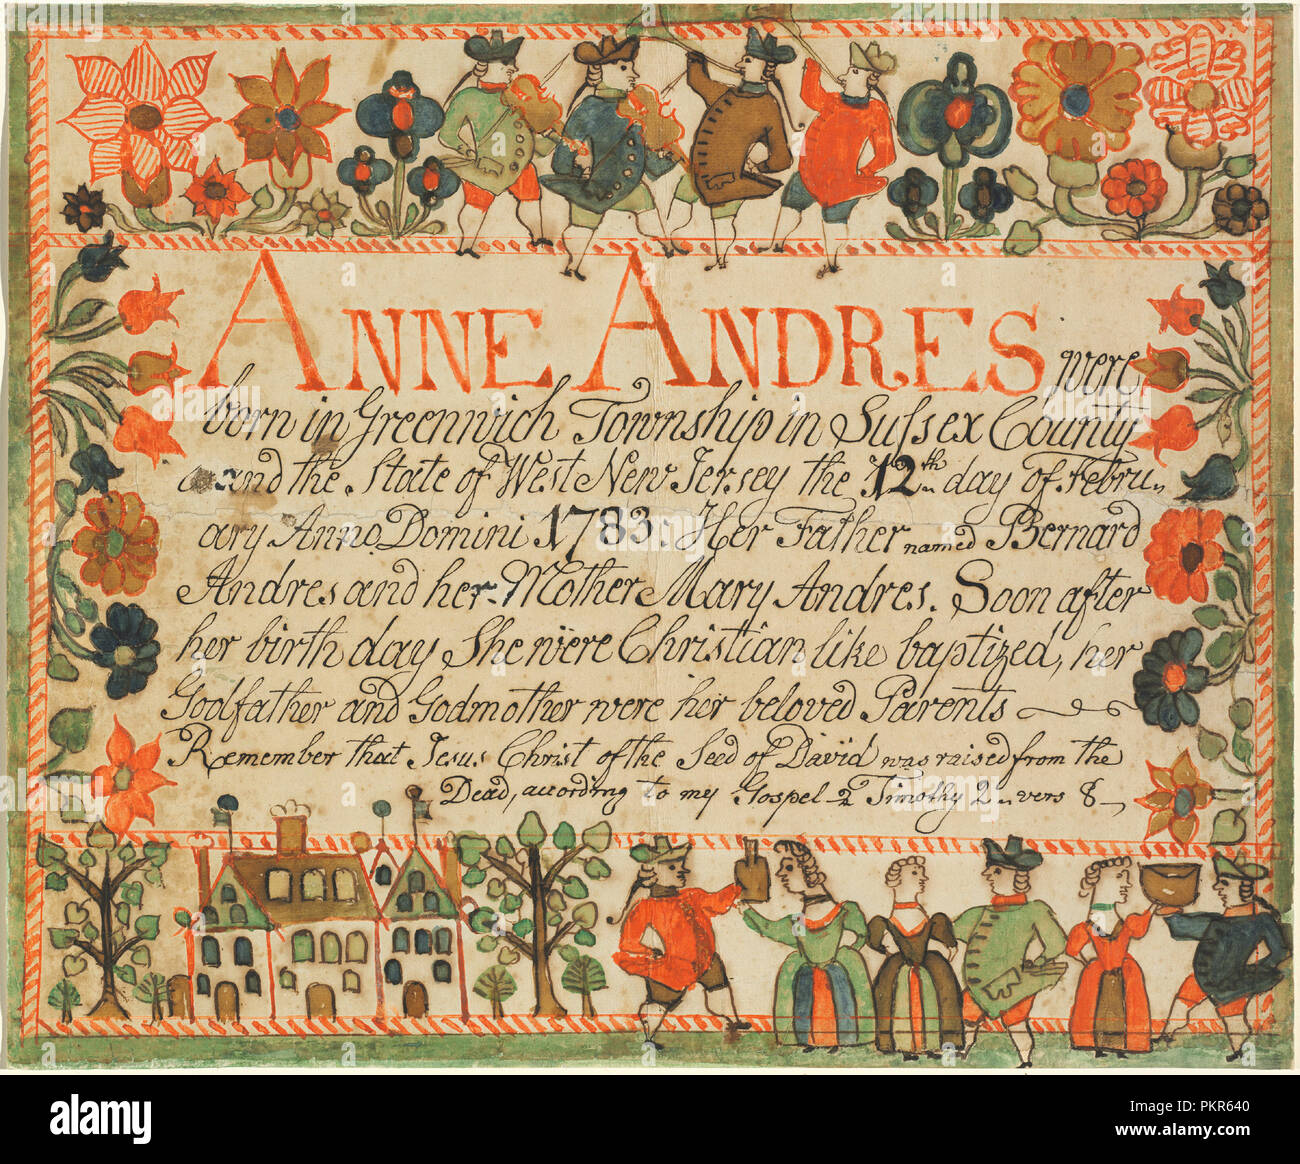 ANNE ANDRES were
born in Greenwich Township in Sussex County
and the State of West New Jersey the 12th day of Febru-
ary Anno Domini 1783. Her Father named Bernard
Andres and her Mother Mary Andres. Soon after
her birth day She were Christian like baptized, her
Godfather and Godmother were her beloved Parents
Remember that Jesus Christ of the Seed of David was raised from the
Dead, according to my Gospel 2 Timothy 2 vers 8
a
alamy
alamy
Image ID: PKR640
www.alamy.com